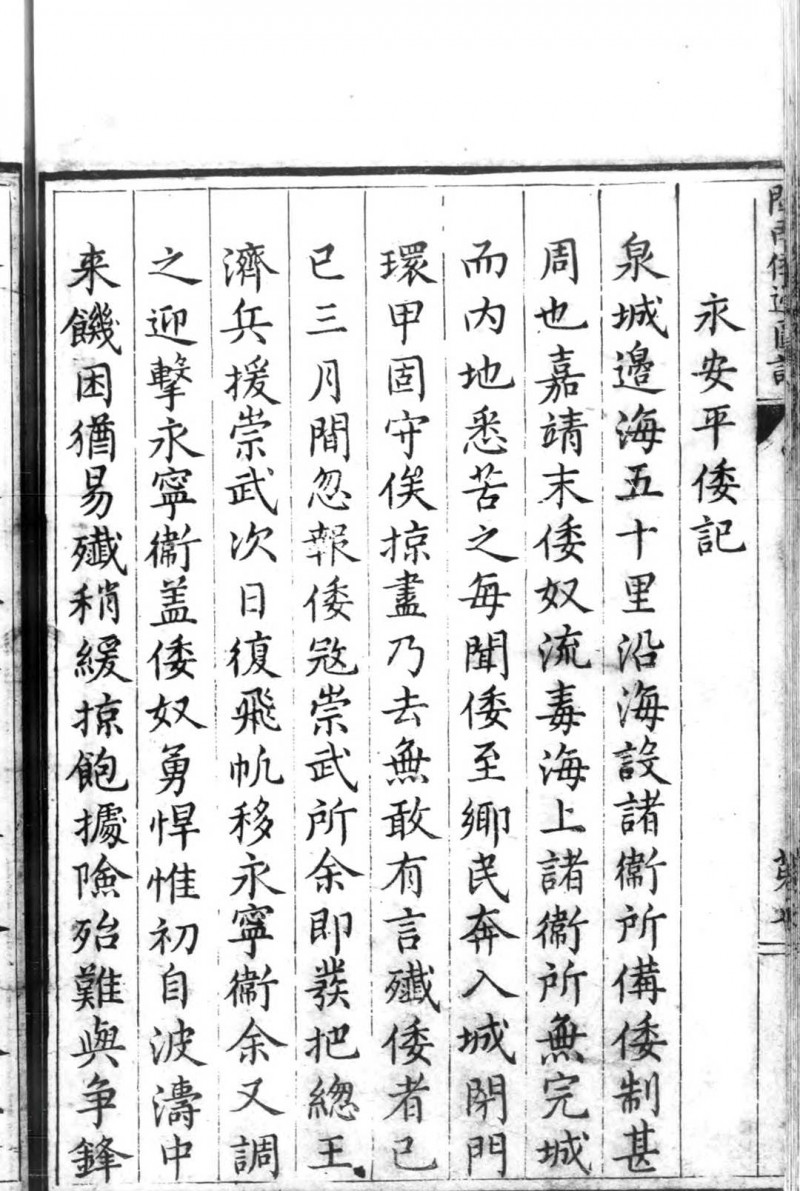 永安平倭記
泉城邊海五十里沿海設諸衞所備倭制甚
周也嘉靖末倭奴流毒海上諸衞所無完城
而内地悉苦之每聞倭至鄉民奔入城閉門
環甲固守俟掠盡乃去無敢有言殲倭者己
巳三月間忽報倭寇崇武所余即發把總王
濟兵援崇武次日復飛帆移永寧衞余又調
之迎擊永寧衞盖倭奴勇悍惟初自波濤中
来饑困猶易殲稍緩掠飽據險殆難與争鋒